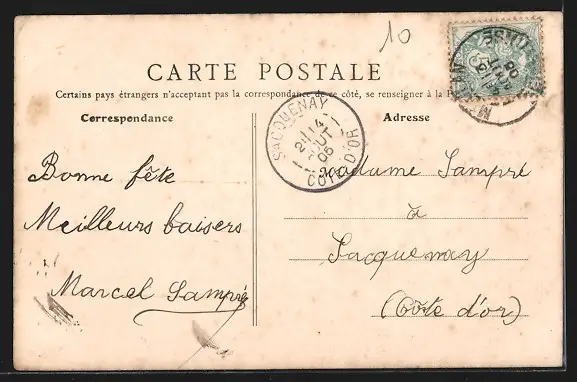 10
CARTE POSTALE
Certains pays étrangers n'acceptant pas la correspondance de ce côté, se renseigner à la P
Correspondance
Adresse
SACQUENAY
14
OUT
05
CÔTE D'OR
Bonne fête
Meilleurs baisers
Marcel Sampré
Madame Sampré
à
Sacquenay
(Côte d'or)